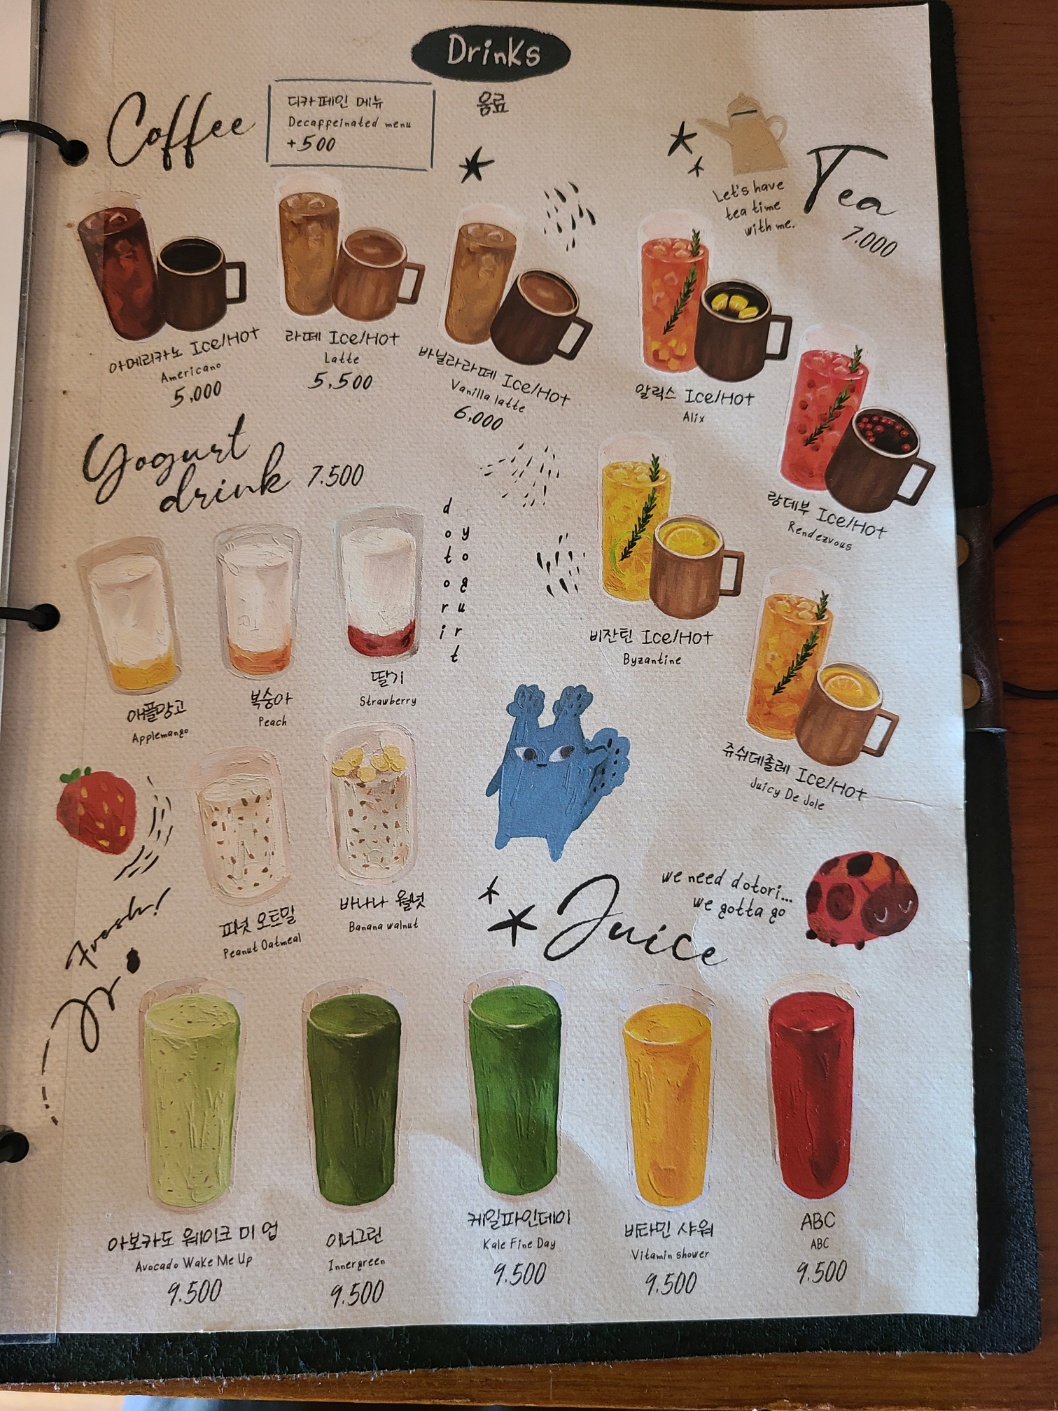 Drinks
음료
Coffee
디카페인 메뉴
Decaffeinated menu
+500
아메리카노 Ice/Hot
Americano
5,000
라떼 Ice/Hot
Latte
5,500
바닐라라떼 Ice/Hot
Vanilla latte
6,000
Let's have
tea time
with me.
Tea
7.000
알릭스 Ice/Hot
Alix
랑데부 Ice/Hot
Rendezvous
비잔틴 Ice/Hot
Byzantine
쥬쉬데졸레 Ice/Hot
Juicy De Jole
Yogurt
drink 7.500
dotori
yogurt
애플망고
Applemango
복숭아
Peach
딸기
Strawberry
피넛 오트밀
Peanut Oatmeal
바나나 월넛
Banana walnut
Fresh!
we need dotori...
we gotta go
Juice
아보카도 웨이크 미 업
Avocado Wake Me Up
9.500
이너그린
Innergreen
9.500
케일파인데이
Kale Fine Day
9.500
비타민 샤워
Vitamin shower
9.500
ABC
ABC
9.500